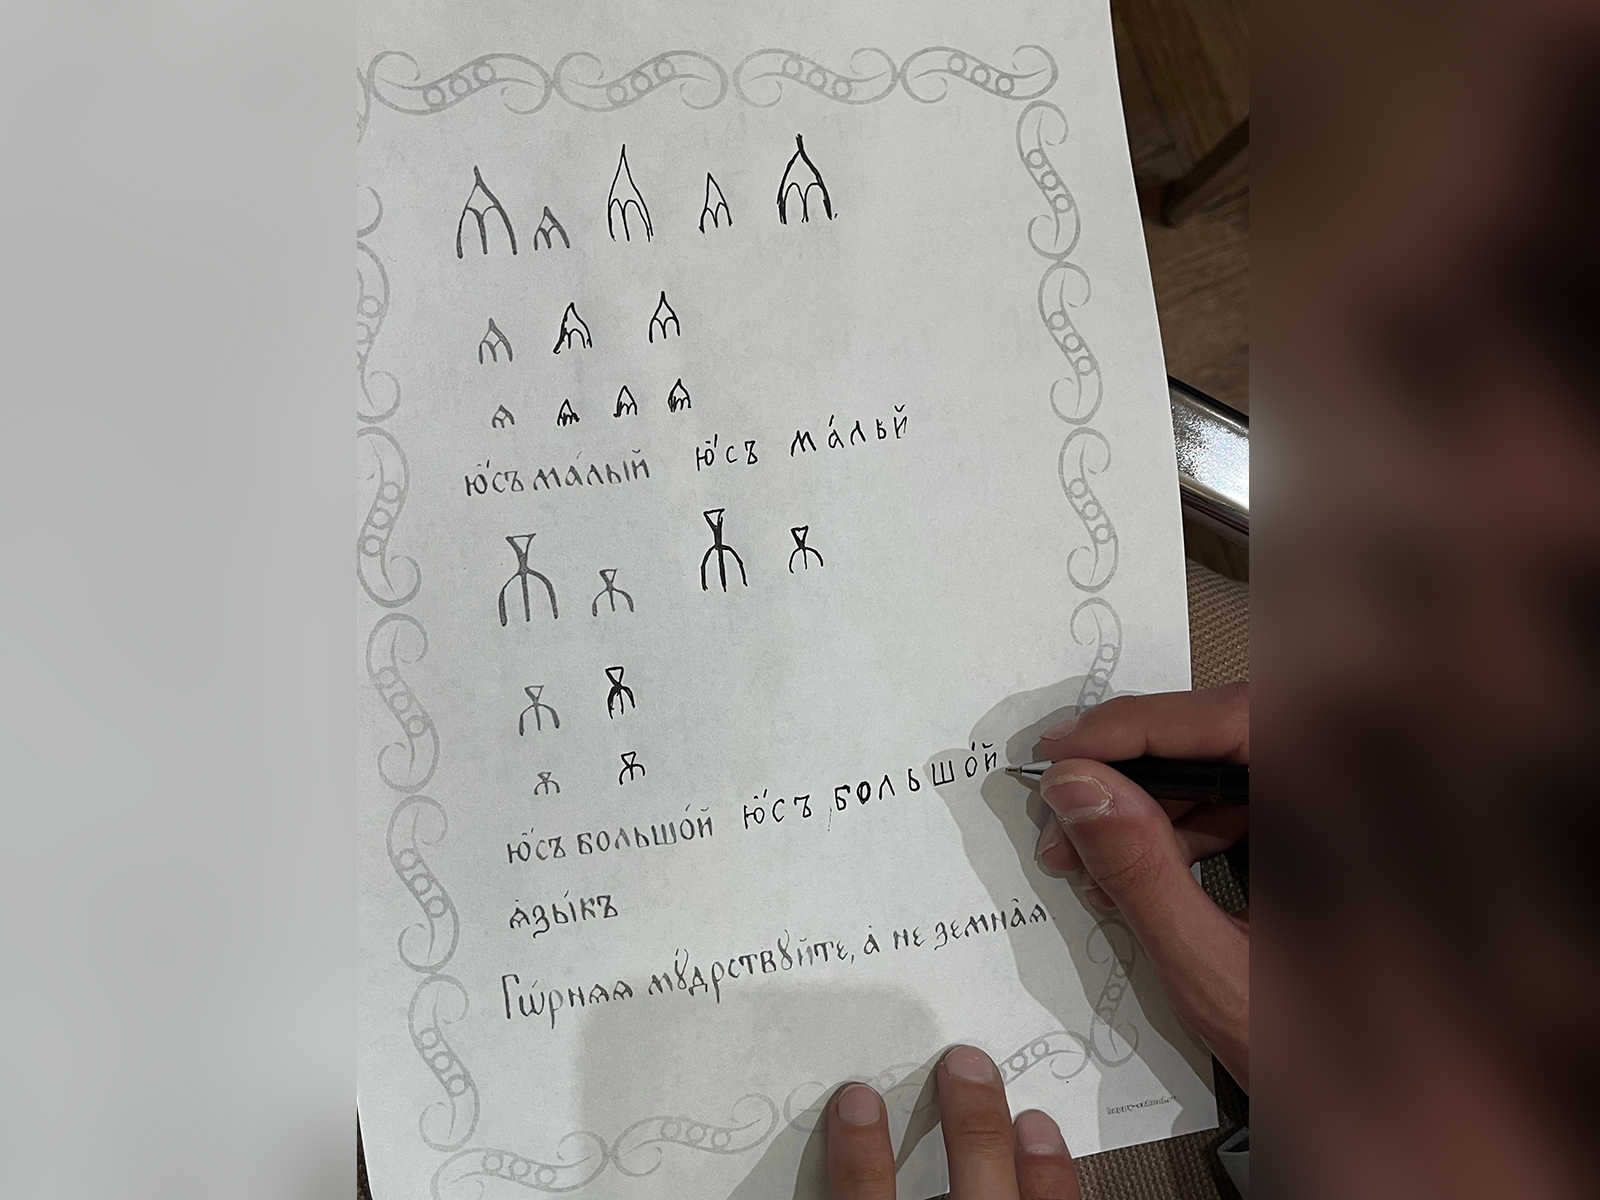 Ѧ ѧ Ѧ ѧ Ѧ
ѧ ѧ ѧ
ѧ ѧ ѧ ѧ
ю҆́съ ма́лый ю҆́съ ма́лый
Ѫ ѫ Ѫ ѫ
ѫ ѫ
ѫ ѫ
ю҆́съ большо́й ю҆́съ большо́й
ѧ҆зы́къ
Гѡ́рнѧѧ мꙋ́дрствꙋйте, а҆ не земна̑ѧ.